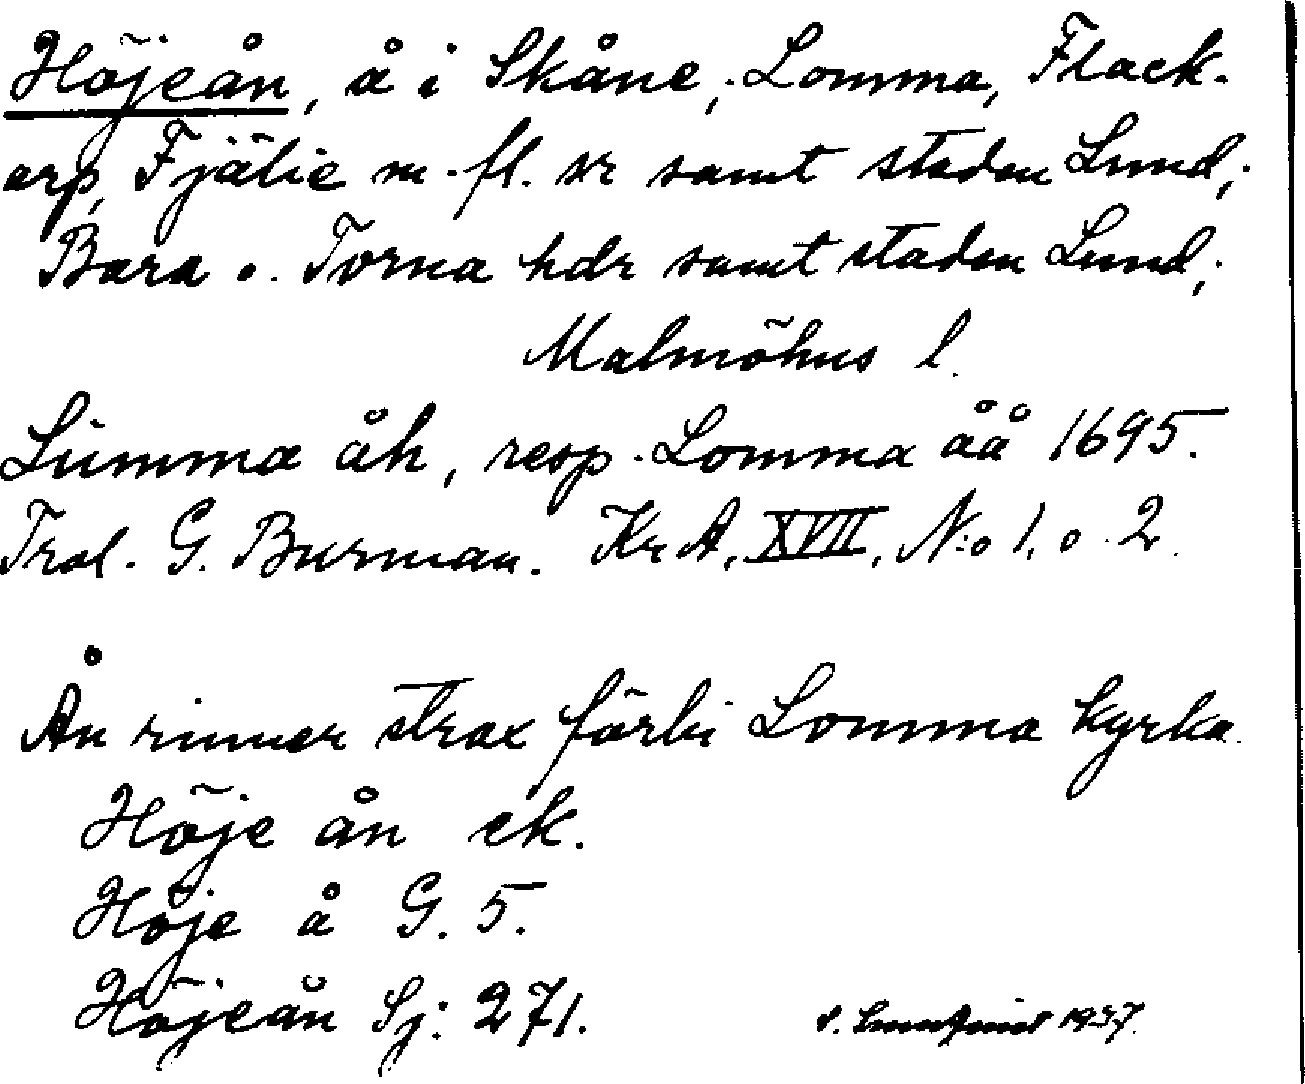 Höjeån, å i Skåne; Lomma, Flack-
arp, Fjälie m. fl. sr samt staden Lund;
Bara o. Torna hdr samt staden Lund;
Malmöhus l.
Lumma åh, resp. Lomma åå 1695.
Trol. G. Burman. KrA, XVII, N:o 1. o 2.
Ån rinner strax förbi Lomma kyrka.
Höje ån ek.
Höje å G. 5.
Höjeån Sj: 271.
1937.